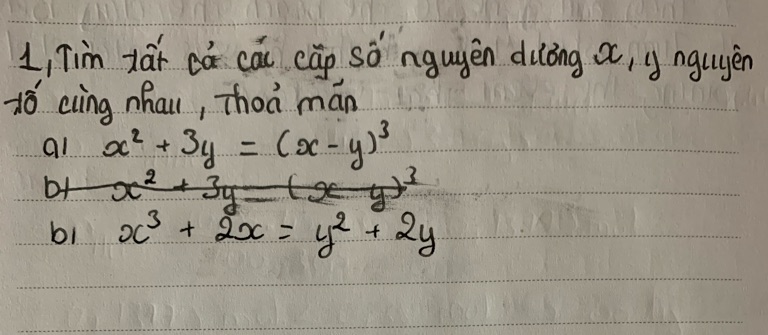 1, Tìm tất cả các cặp số nguyên dương x, y nguyên
tố cùng nhau, thoả mãn
a) x² + 3y = (x - y)³
b) x² + 3y = (x y)³
b) x³ + 2x = y² + 2y